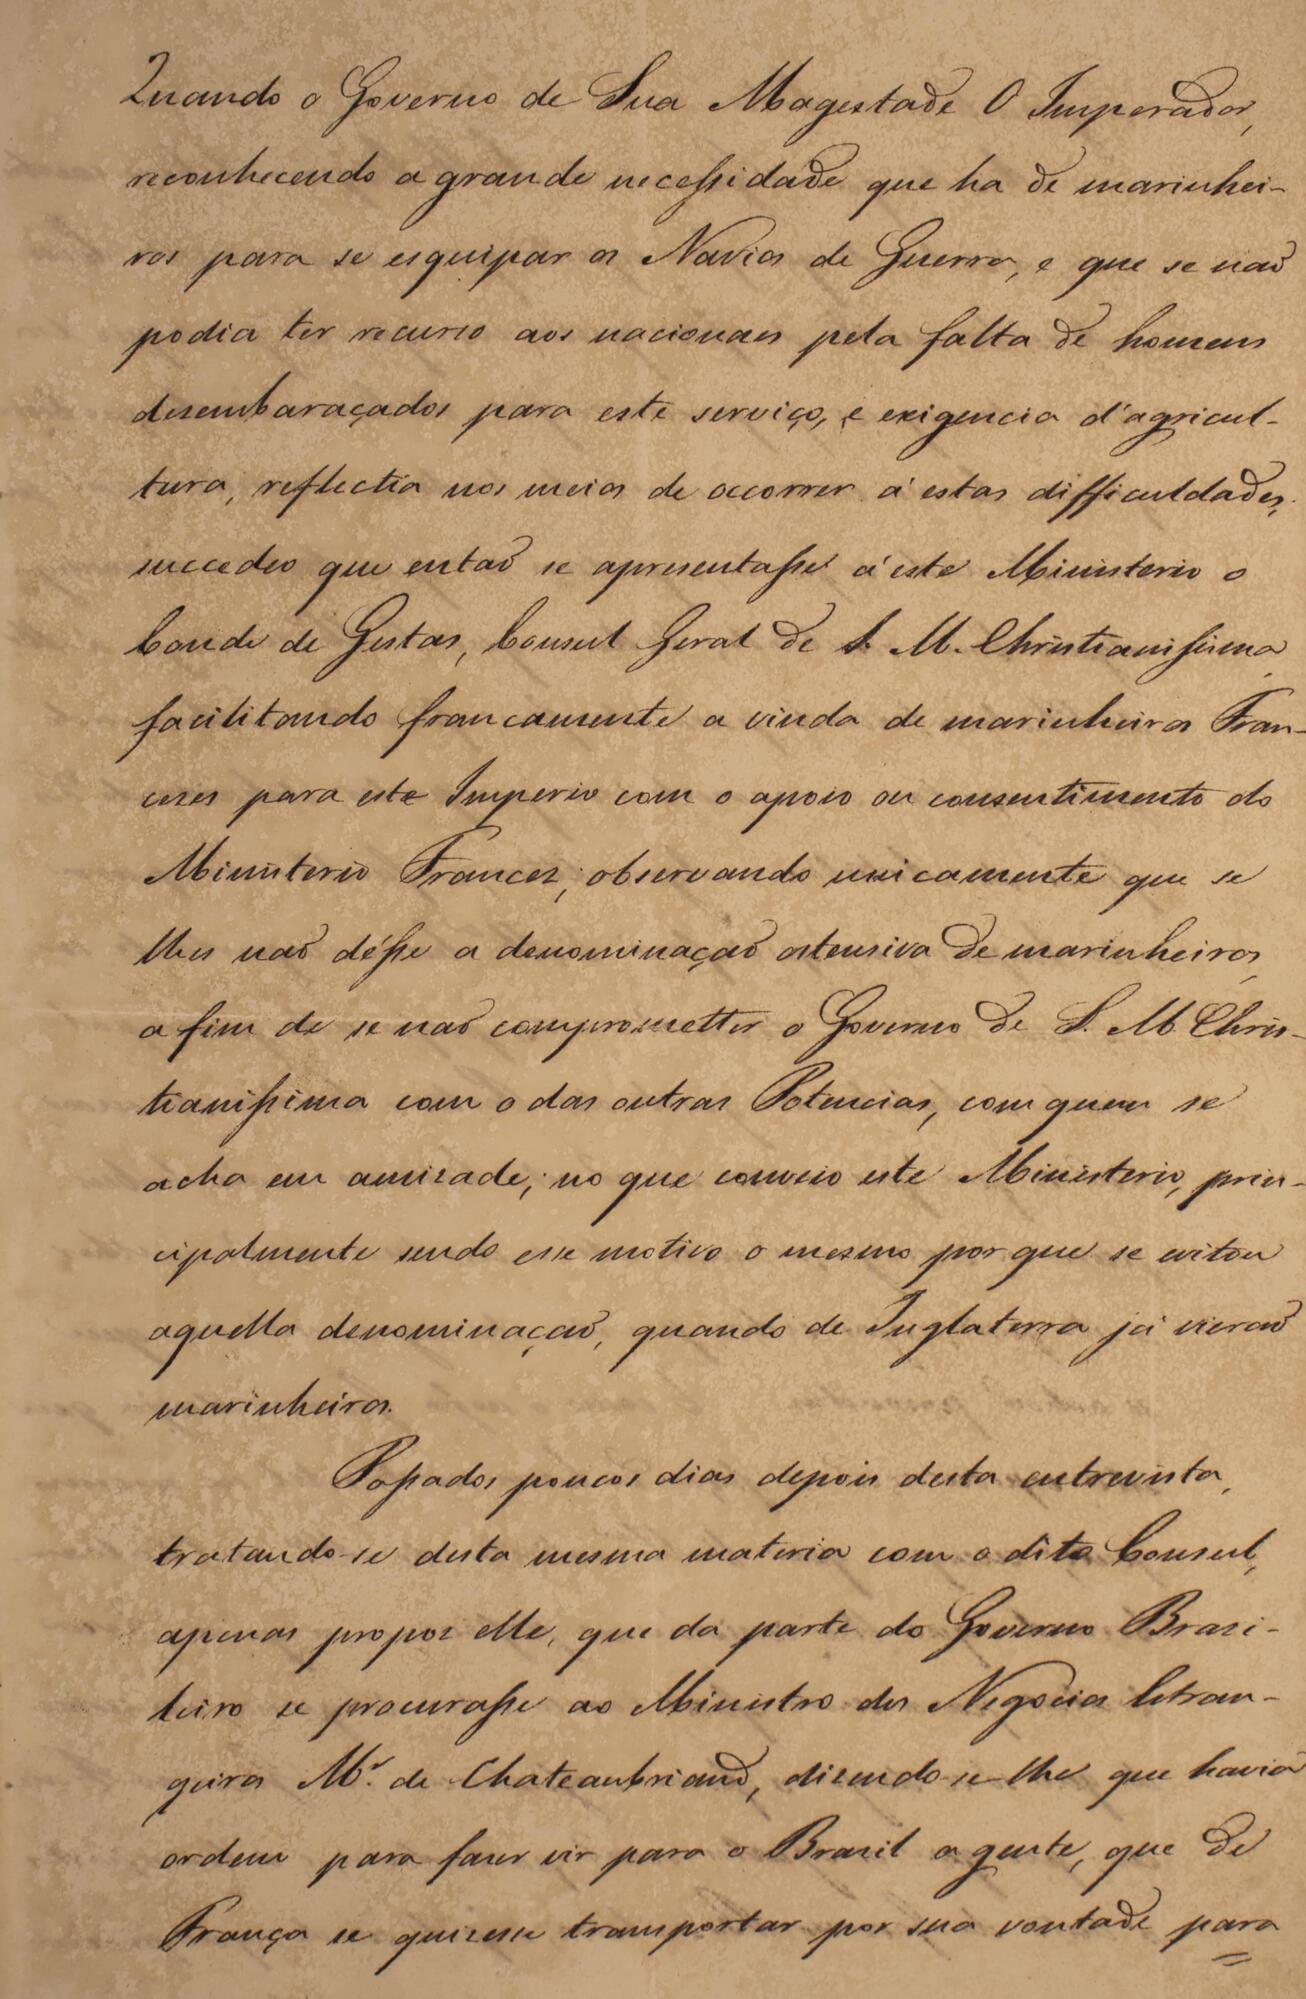 Quando o Governo de Sua Magestade O Imperador,
reconhecendo a grande necessidade que ha de marinhei-
ros para se esquipar os Navios de Guerra, e que se naõ
podia ter recurso aos nacionaes pela falta de homens
desembaraçados para este serviço, e exigencia d'agricul-
tura, reflectia nos meios de occorrer á estas difficuldades,
succedeo que entaõ se apresentasse á este Ministerio o
Conde de Gestas, Consul Geral de S. M. Christianissima
facilitando francamente a vinda de marinheiros Fran-
cezes para este Imperio com o apoio ou consentimento do
Ministerio Francez, observando unicamente que se
lhes naõ désse a denominaçaõ ostensiva de marinheiros,
a fim de se naõ comprometter o Governo de S. M. Chris-
tianissima com o das outras Potencias, com quem se
acha em amizade; no que conveio este Ministerio, prin-
cipalmente sendo esse motivo o mesmo por que se evitou
aquella denominaçaõ, quando de Inglaterra já vieraõ
marinheiros.
Passados poucos dias depois desta entrevista,
tratando-se desta mesma materia com o dito Consul,
apenas propoz elle, que da parte do Governo Brazi-
leiro se procurasse ao Ministro dos Negocios Estran-
geiros Mr. de Chateaubriand, dizendo-se-lhe que havia
ordem para fazer vir para o Brazil a gente, que de
França se quizesse transportar por sua vontade para